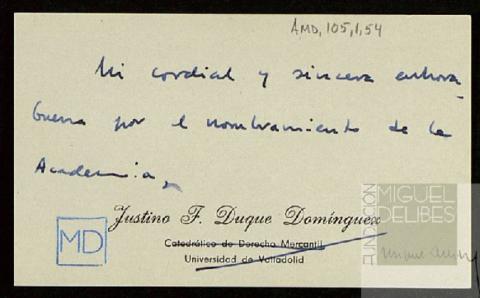 AMD, 105, 1, 54
Mi cordial y sincera enhora-
buena por el nombramiento de la
Academia,
Justino F. Duque Domínguez
Catedrático de Derecho Mercantil
Universidad de Valladolid
MD
FUNDACIÓN
MIGUEL
DELIBES